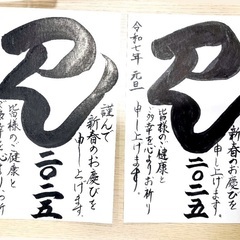 巳
謹んで
新春のお慶びを
申し上げます。
二〇二五
皆様のご健康と
ご多幸を心よりお祈り
巳
新春のお慶びを
申し上げます。
二〇二五
皆様のご健康と
ご多幸を心よりお祈り
申し上げます。
令和七年 元旦